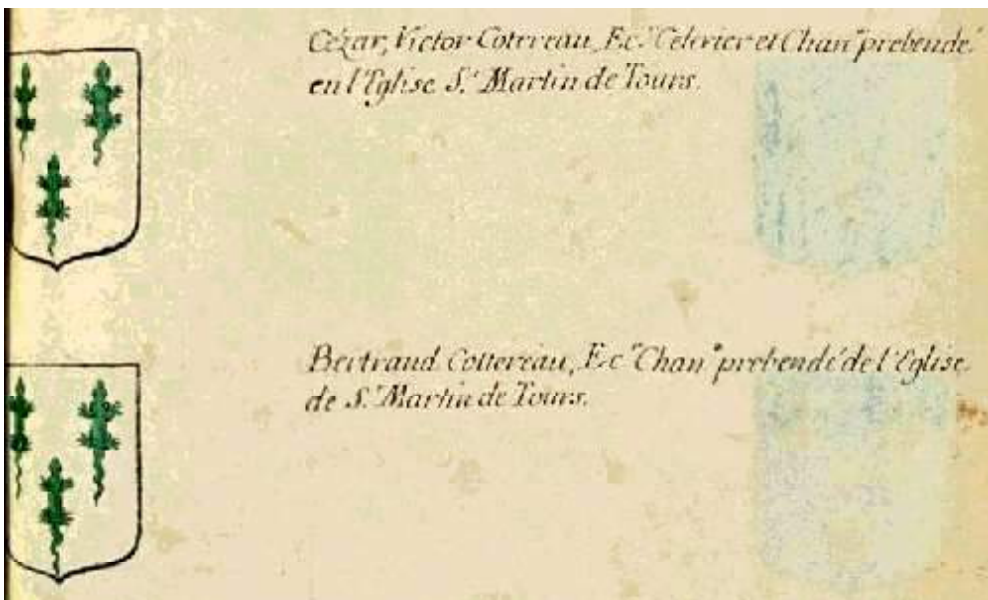 Cézar, Victor Cottereau, Ec.ʳ Celerier et Chan.ⁿᵉ prebendé
en l'Eglise S.ᵗ Martin de Tours.
Bertrand Cottereau, Ec.ʳ Chan.ⁿᵉ prebendé de l'Eglise
de S.ᵗ Martin de Tours.